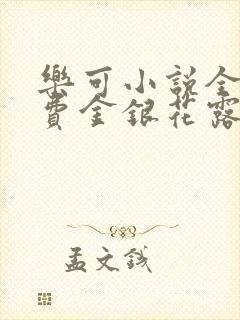 樂可小說全
費金銀花露
孟文钱